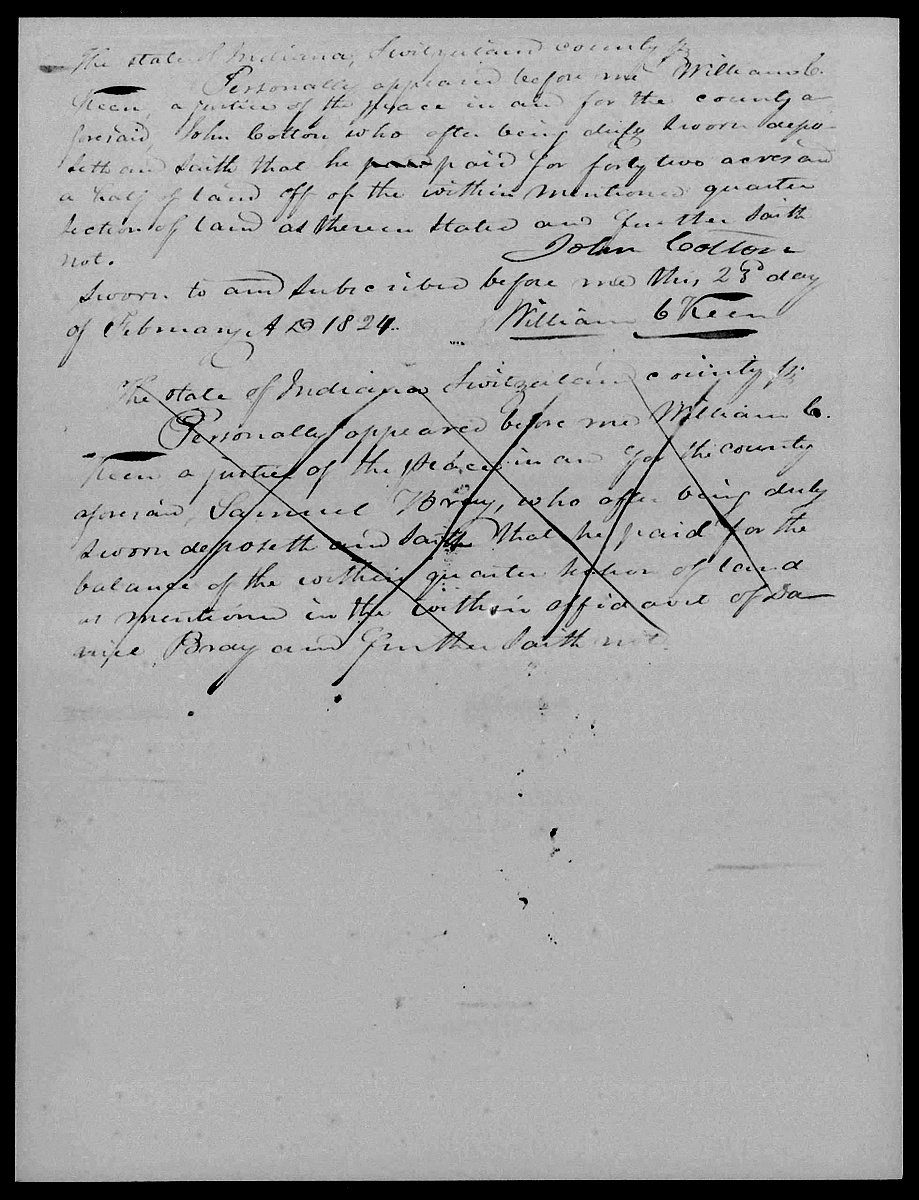 The state of Indiana, Switzerland county ss
Personally appeared before me William C.
Keen a justice of the peace in and for the county a-
foresaid, John Cotton who after being duly sworn depo-
seth and saith that he paid for forty two acres and
a half of land off of the within mentioned quarter
section of land as therein stated and further saith
not. John Cotton
Sworn to and subscribed before me this 23d day
of February A D 1824. William C Keen
The state of Indiana Switzerland county ss
Personally appeared before me William C.
Keen a justice of the peace in and for the county
aforesaid, Samuel Bray, who after being duly
sworn deposeth and saith that he paid for the
balance of the within quarter section of land
as mentioned in the within affidavit of Da-
niel Bray and further saith not.